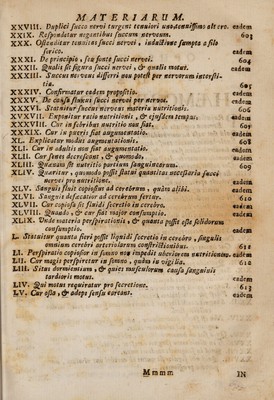 MATERIARUM.
XXVIII. Duplici succo nervi turgent tenuiori uno, tenuissimo alt ero. eadem
XXIX. Respondetur negantibus succum nerveum. 603
XXX. Ostenditur tenuitas succi nervei, inductione sumpta a filo
serico. eadem
XXXI. De principio, seu fonte succi nervei. 604
XXXII. Qualis sit figura succi nervei, & qualis motus. eadem
XXXIII. Succus nerveus differri non potest per nervorum interstitia. 605
XXXIV. Confirmatur eadem propositio. eadem
XXXV. De causa fluxus succi nervei per nervos. eadem
XXXVI. Statuitur succus nerveus materia nutritionis. 606
XXXVII. Expenitur ratio nutritionis, & ejusdem tempus. eadem
XXXVIII. Cur in febribus nutritio non fiat. 607
XXXIX. Cur in pueris fiat augumentatio. eadem
XL. Explicatur modus augmentationis. 608
XLI. Cur in adultis non fiat augumentatio. eadem
XLII. Cur senes decrescunt, & quomodo. eadem
XLIII. Quantum fit nutritio portione sanguinearum. 609
XLIV. Quæritur, quomodo possit statui quantitas necessaria succi
nervei pro nutritione. eadem
XLV. Sanguis fluit copiosius ad cerebrum, quam alibi. eadem
XLVI. Sanguis defæcatior ad cerebrum fertur. 610
XLVII. Cur copiosa sit fluidi secretio in cerebro. eadem
XLVIII. Quando, & cur fiat major consumptio. eadem
XLIX. Unde materia perspirationis, & quanta posset esse solidorum
consumptio. eadem
L. Statuitur quanta fieri posset liquidi secretio in cerebro, singulis
omnium cerebri arteriolarum constrictionibus. 611
LI. Perspiratio copiosior in somno non impedit uberiorem nutritionem. eadem
LII. Cur magis perspiretur in somno, quam in vigilia. 612
LIII. Situs dormientium, & quies musculorum causa sanguinis
tardioris motus. eadem
LIV. Qui motus requiratur pro secretione. 613
LV. Cur ossa, & adeps sensu careant. eadem
Mmmm IN